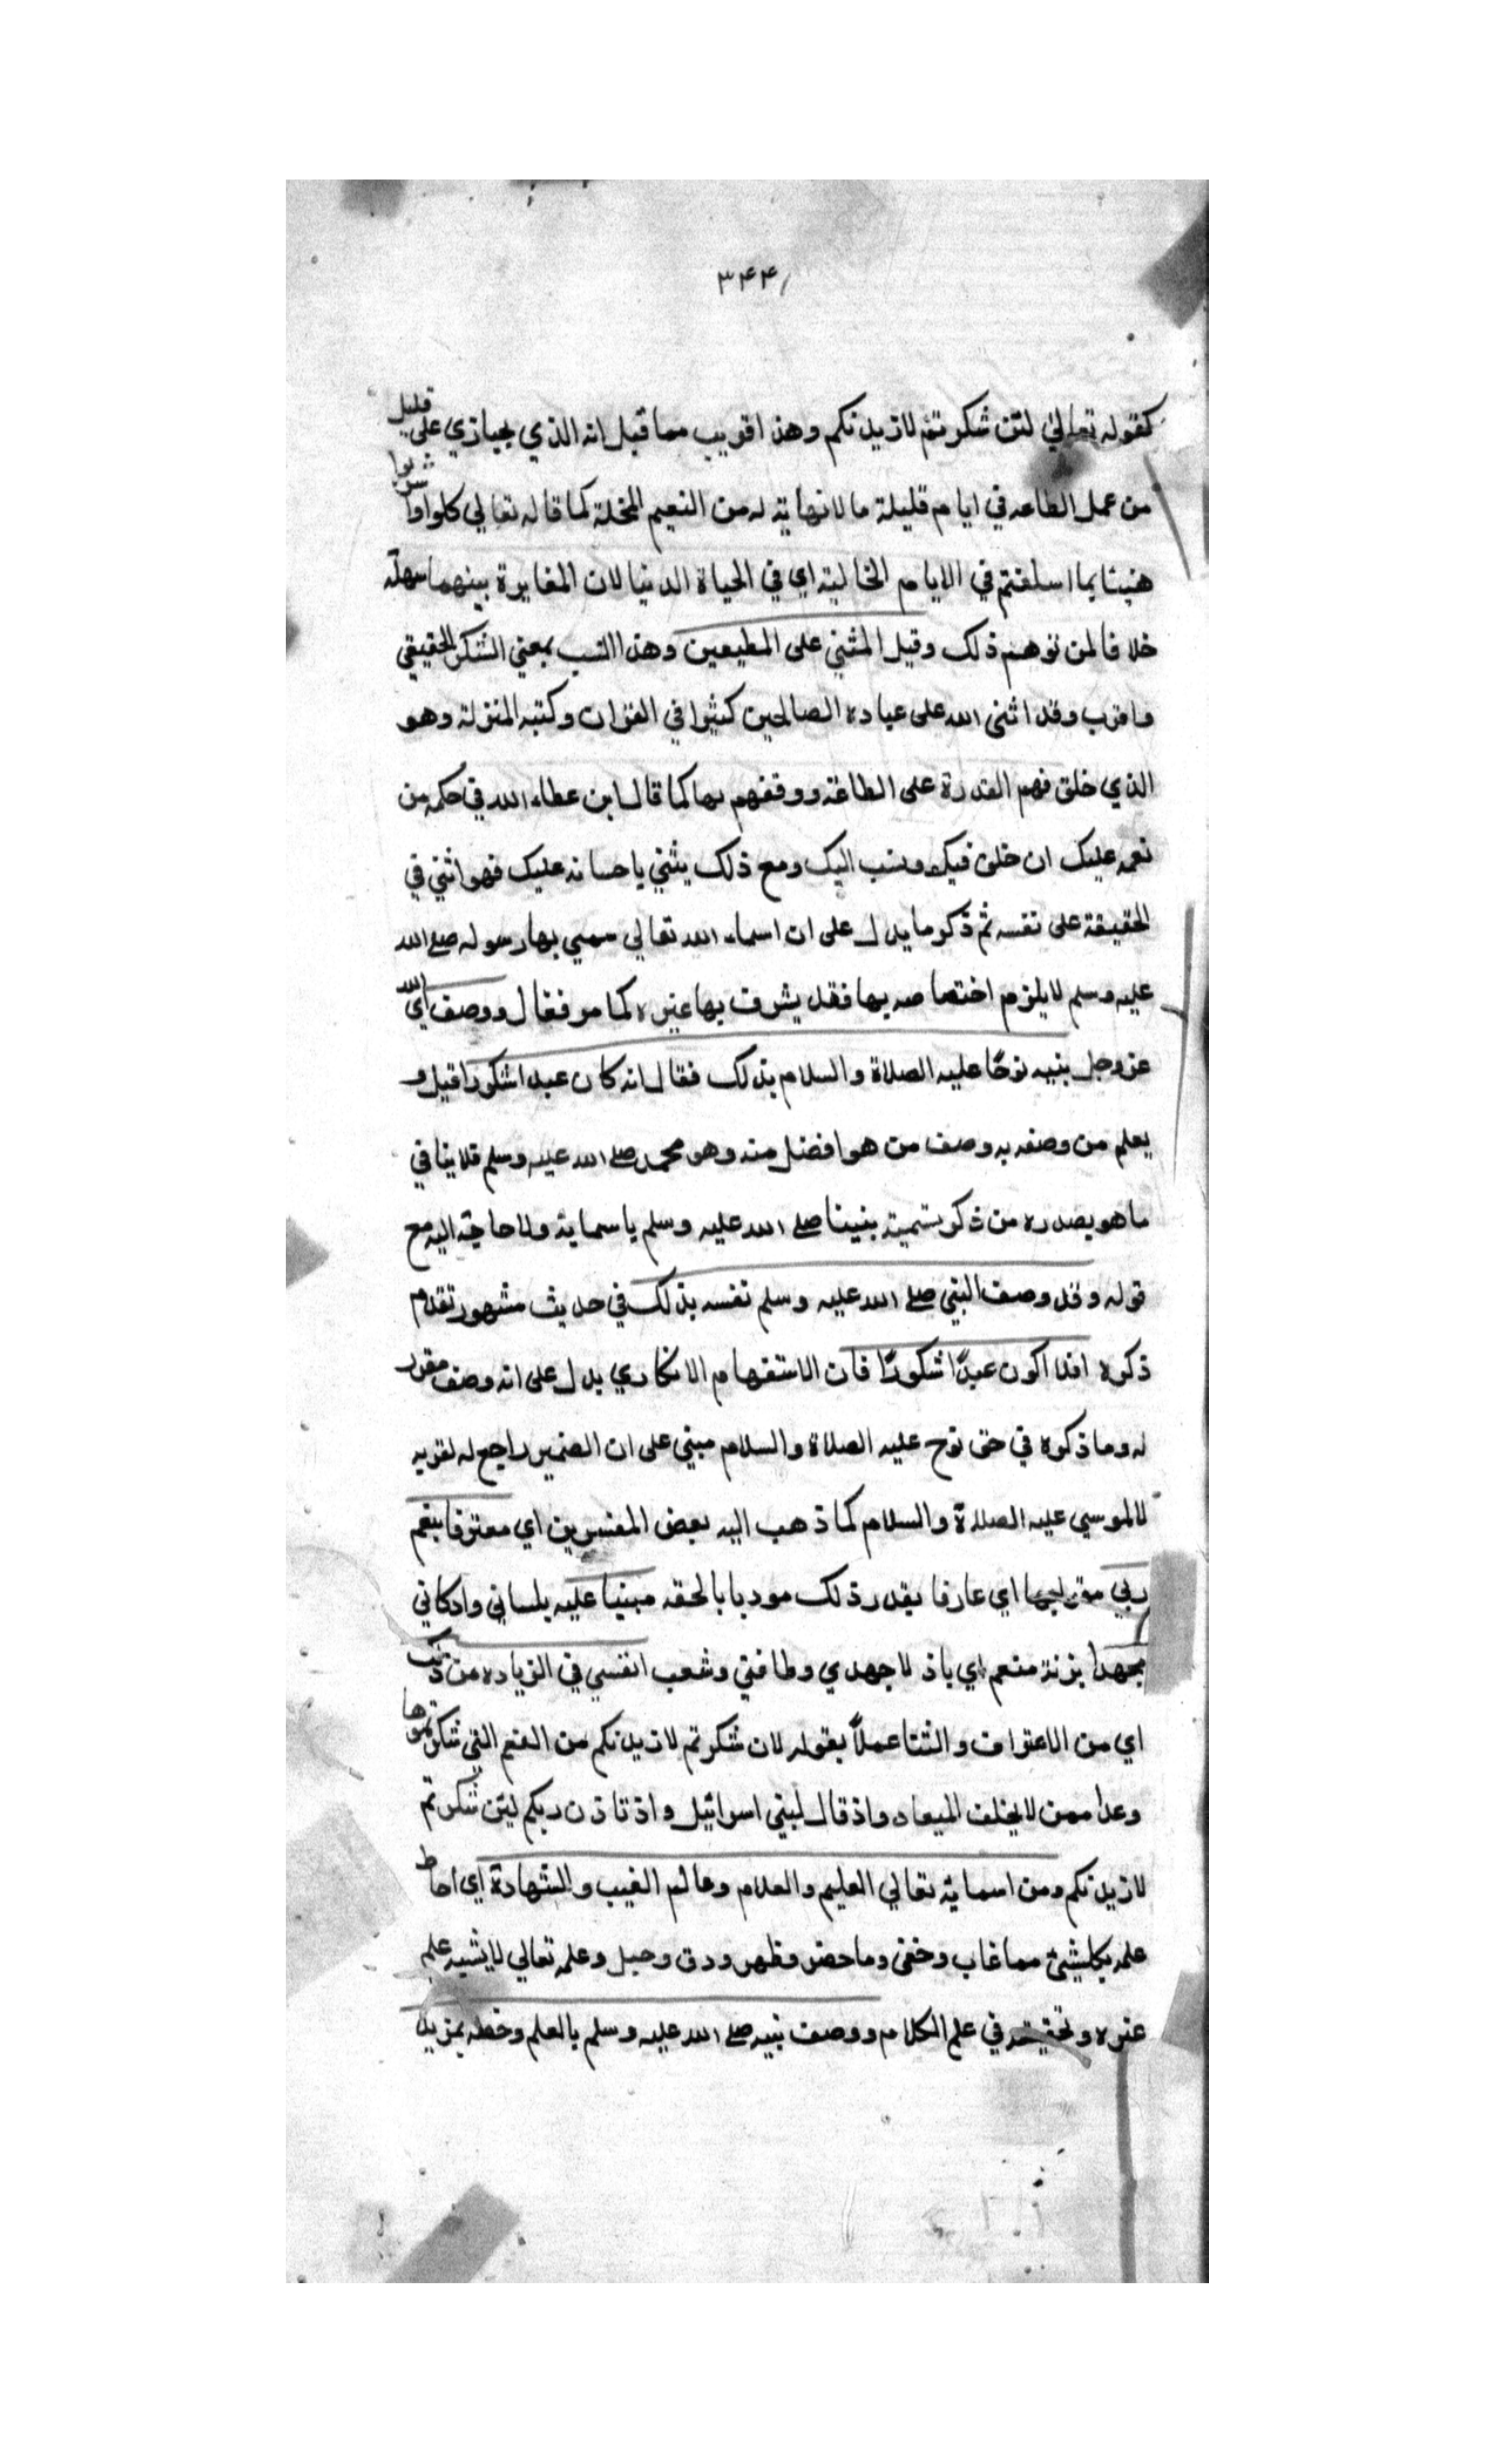 ٣٤٤
كقوله تعالي لئن شكرتم لازيدنكم وهذا قريب مما قبل انه الذي يجازي على قليل
من عمل الطاعه في ايام قليلة ما لانهاية له من النعيم المخلد كما قاله تعالي كلوا واشربوا
هنيئا بما اسلفتم في الايام الخالية اي في الحياة الدنيا لان المغايرة بينهما سهلة
خلافا لمن توهم ذلك وقيل المثني على المطيعين وهذا انسب بمعني الشكر الحقيقي
واقرب وقد اثنى الله على عباده الصالحين كثيرا في القران وكتبه المنزلة وهو
الذي خلق فهم القدرة على الطاعة ووفقهم بها كما قال ابن عطاء الله في حكمه من
نعمه عليك ان خلق فيك ونسب اليك ومع ذلك يثني باحسانه عليك فهو اثني في
الحقيقة على نفسه ثم ذكر ما يدل على ان اسماء الله تعالي سمي بها رسوله صلے الله
عليه وسلم لايلزم اختصاصه بها فقد يشرف بها غيره كما مر فقال ووصف الله اي
عز وجل بنبيه نوحًا عليه الصلاة والسلام بذلك فقال انه كان عبدا شكورا قيل و
يعلم من وصفه به وصف من هو افضل منه وهو محمد صلے الله عليه وسلم فلا ينافي
ما هو بصدده من ذكر تسمية نبينا صلے الله عليه وسلم باسمايه ولا حاجة اليه مع
قوله وقد وصف النبي صلے الله عليه وسلم نفسه بذلك في حديث مشهور تقدم
ذكره افلا اكون عبدًا شكورًا فان الاستفهام الانكاري يدل على انه وصف مقرر
له وما ذكره في حق نوح عليه الصلاة والسلام مبني على ان الضمير راجع له لقربه
لالموسي عليه الصلاة والسلام كما ذهب اليه بعض المفسرين اي معترفا بنعم
ربي مقرا بها اي عارفا بقدر ذلك موديا بالحقه مبنيا عليه بلساني واركاني
مجهدا بزنة منعم اي باذلا جهدي وطاقتي وشعب انفسي في الزياده من ذلك
اي من الاعتراف والثنا عملاً بقوله لان شكرتم لازيدنكم من النعم التي شكرتموها
وعدا ممن لايخلف الميعاد واذ قال لبني اسرائيل واذ تاذن ربكم لئن شكرتم
لازيدنكم ومن اسمائه تعالي العليم والعلام وعالم الغيب والشهادة اي احاط
علمه بكليشئ مما غاب وخفى وما حضر وظهر ودق وجل وعلمه تعالي لايشبه علم
غيره وتحقيقه في علم الكلام ووصف نبيه صلے الله عليه وسلم بالعلم وخطه بمزيد